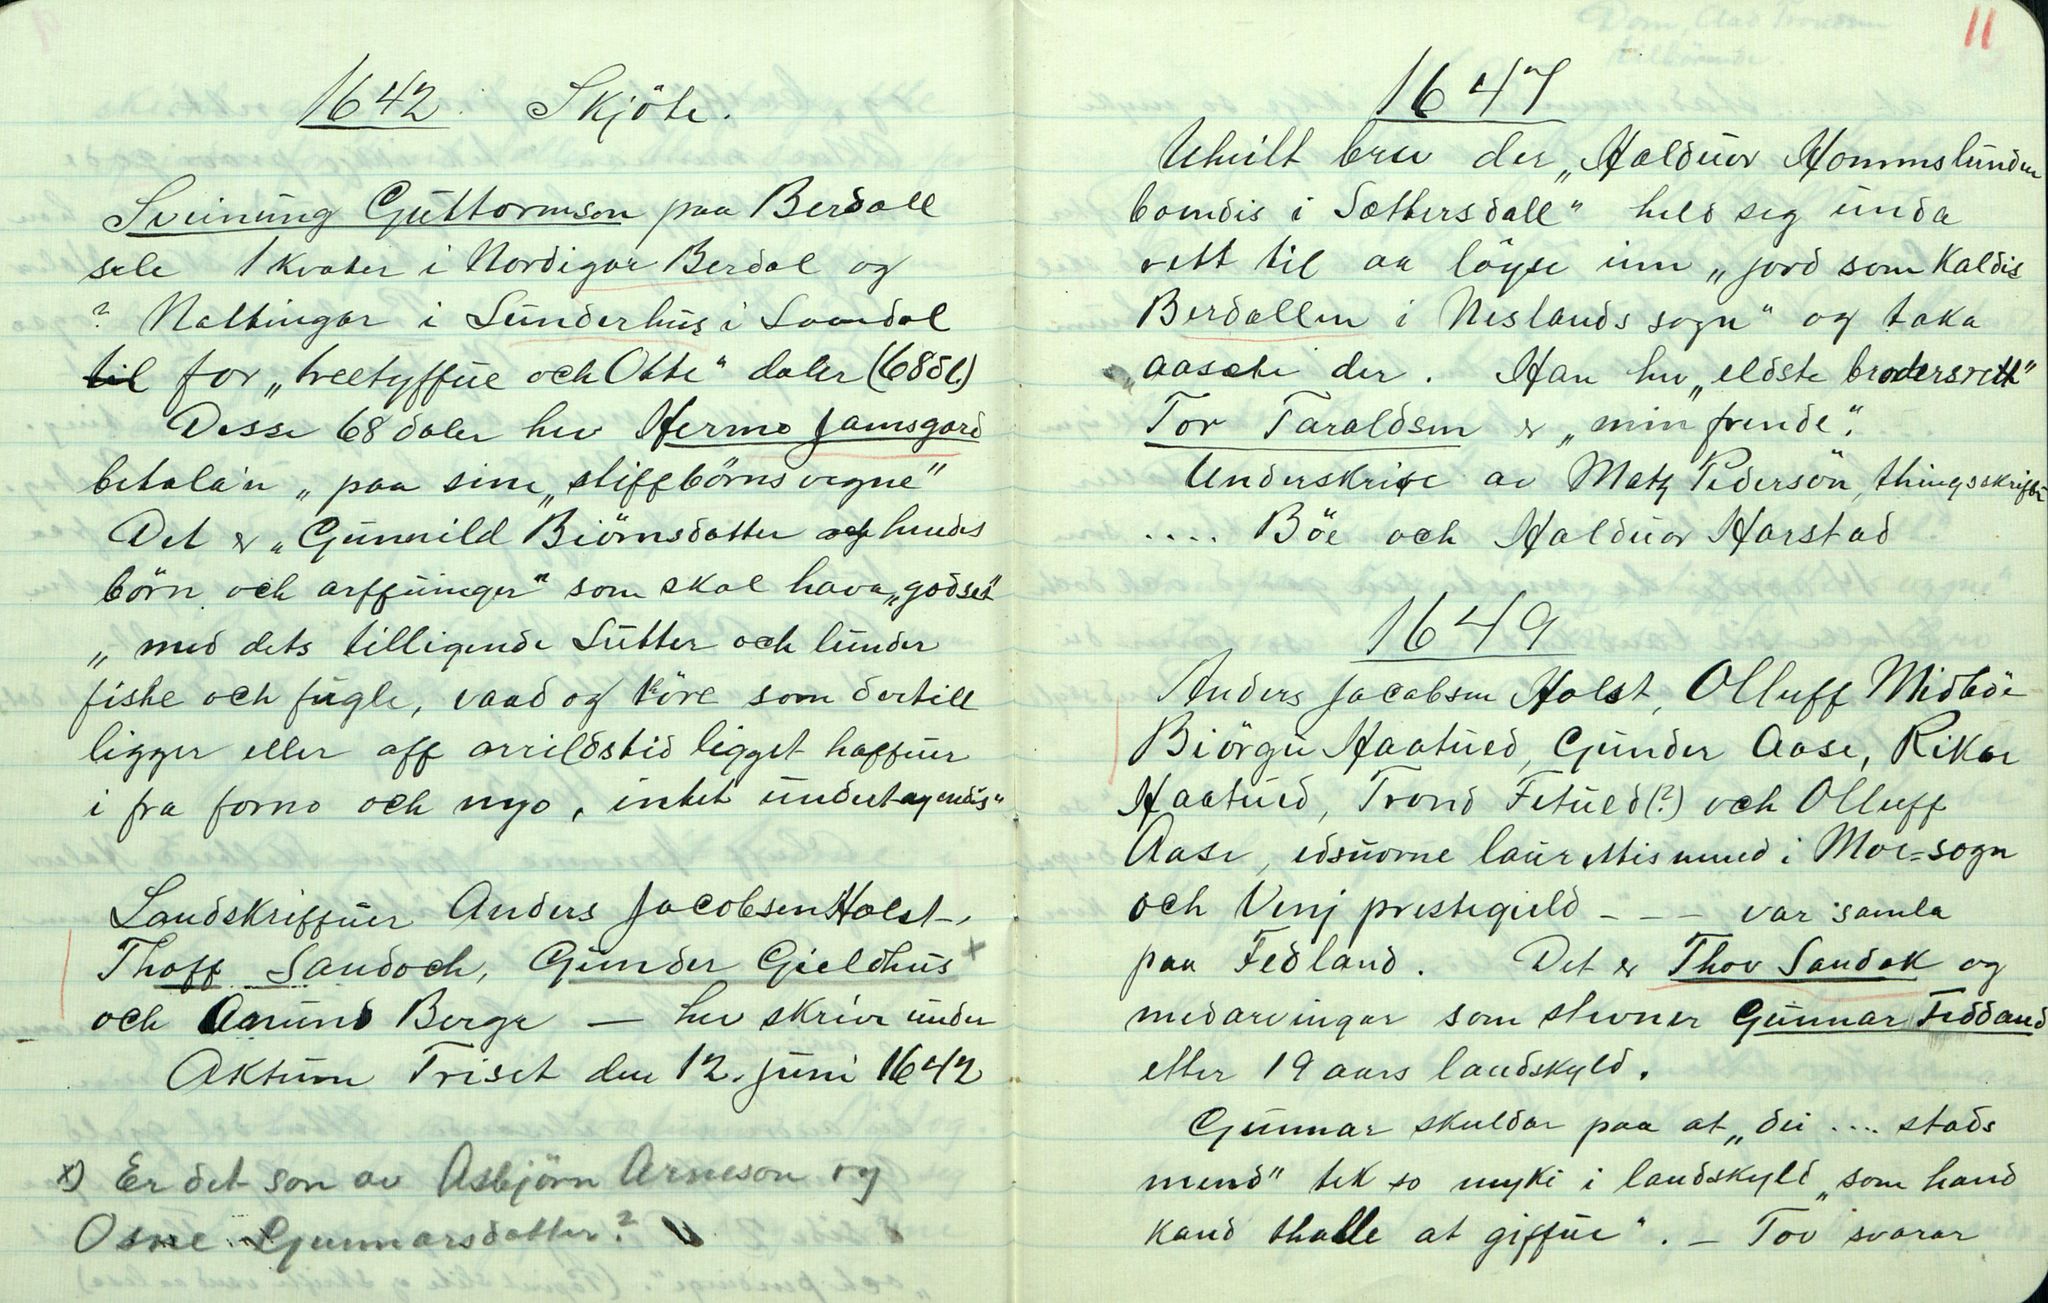 1642. Skjöte.
Sveinüng Güttormson paa Berdall
sele 1 kvater i Nordigar Berdal og
? Naltingar i Sünderhüs i Somdal
til for „treetyffüe och Otte“ daler (68 dl.)
Desse 68 daler hev Hermo Jamsgard
betala'n „paa sine „stiffbörns vegne“
Det er „Günnild Biörnsdatter och hendes
börn och arffüinger“ som skal hava „godset“
„med dets tilligende Lütter och lünder
fiske och fügle, vaad og töre som dertill
ligger eller aff arrildstid ligget haffuer
i fra forno och nyo, intet ündertagendis“
Landskriffüer Anders Jacobsen Holst,
Thoff Sandoch, Günder Gieldhüs x
och Aanünd Berge — hev skrive ünder
Aktüm Triset den 12. jüni 1642
x) Er det son av Asbjörn Arneson og
Osne Gunnarsdatter?
11
Dom, Aad Trondsen
1647
Uhilt brev der „Haldüor Hommslünden
boendis i Sættersdall“ held seg ünda
rett til aa löyse inn „jord som kaldis
Berdallen i Neslands sogn“ og taka
„aasete der. Han hev „eldste brodersrett“
Tor Taraldsen er „min frende“.
Underskrive av Matz Pedersön, thingsskrifver
.... Böe och Haldüor Harstad
1649
Anders Jacobsen Holst, Olluff Midböe
Biörgu Haatüed, Günder Aase, Rikar
Haatüed, Trond Fetüed (?) och Olluff
Aase, edsüorne laürettismend i Moe=sogn
och Vinj prestegield - - - var samla
paa Fedland. Det er Thov Sandok og
medarvingar som stevner Günnar Feddand
etter 19 aars landskyld.
Günnar skuldar paa at „dei .... stads
mend“ tek so mykje i landskyld „som hand
kand thaalle at giffüe“. — Tov svarar